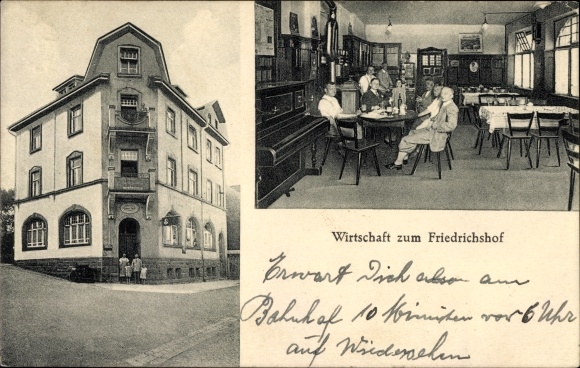 Wirtschaft zum Friedrichshof
Erwart Dich also am
Bahnhof 10 Minuten vor 6 Uhr
auf Wiedersehen